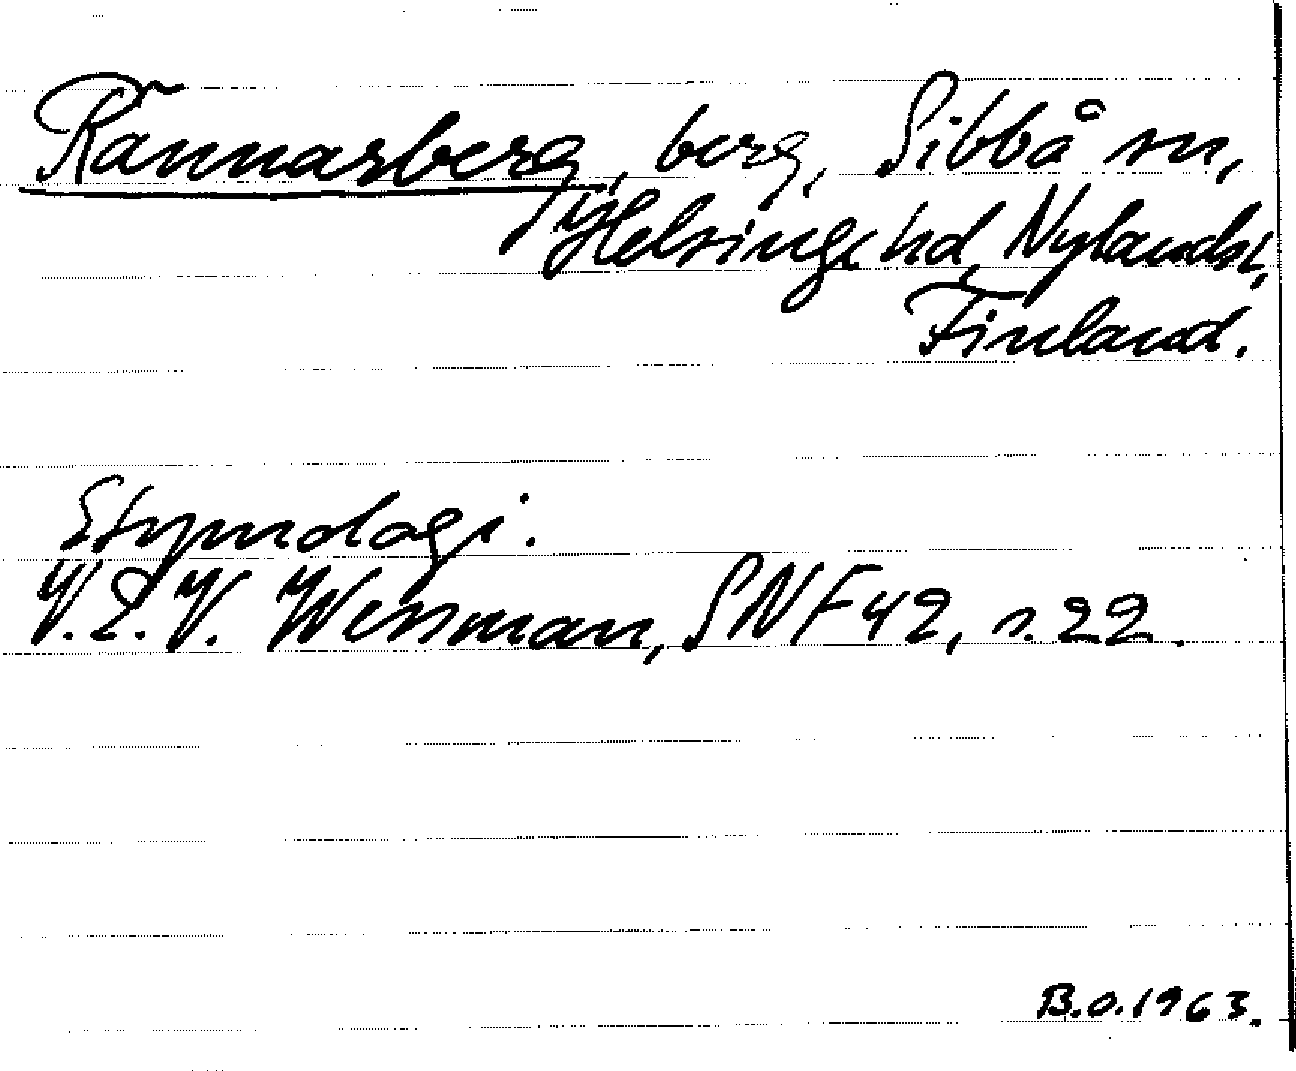 Rännarsberg, berg, Sibbå sn,
Helsinge hd, Nylands l,
Finland.
Etymologi.
V.E.V. Wessman, SNF 42, s. 22.
B.O. 1963.